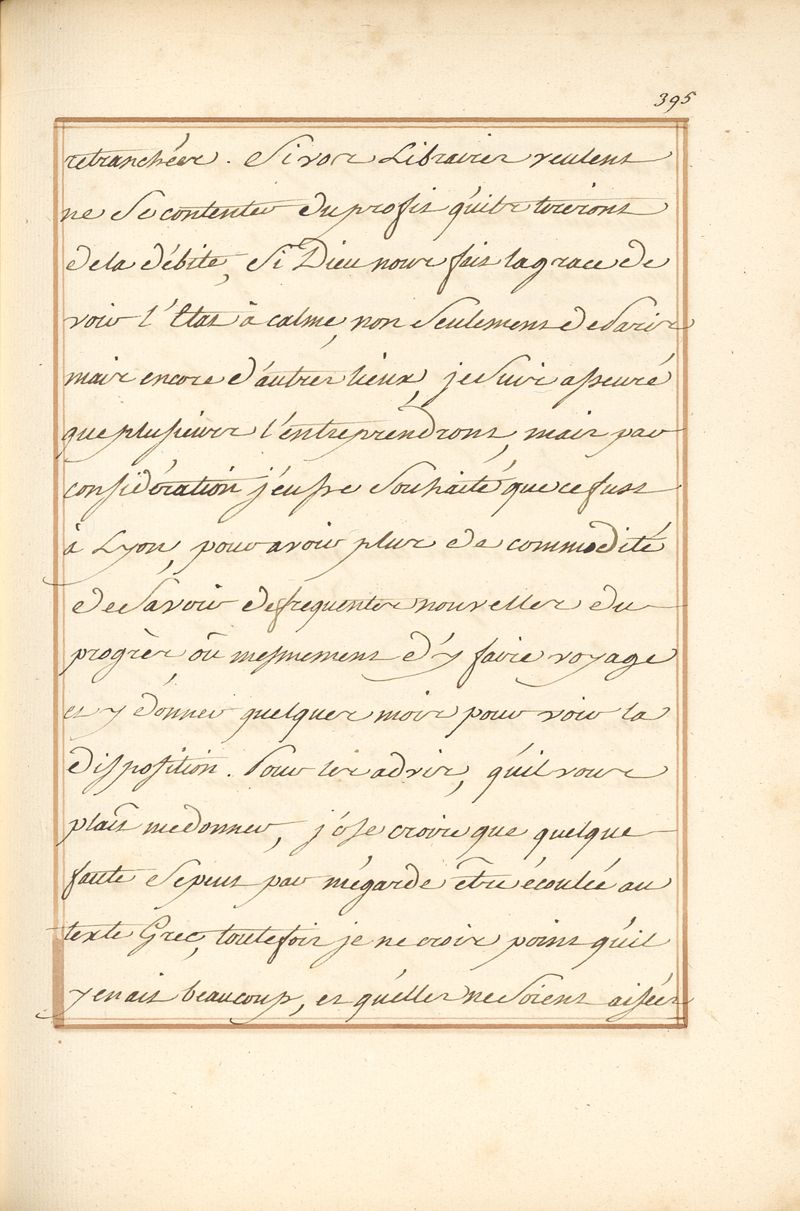 395
retranchées. Si vos Libraires veulent
ne se contenter du profit qu'ils tireront
de la débite, Si Dieu nous fait la grace de
voir l'Etat à calme, non seulement de Paris
mais encore d'autres lieux, je suis asseuré
que plusieurs l'entreprendront, mais par
considération j'eusse souhaité que ce fust
à Lyon, pour avoir plus de commodité
de savoir de frequentes nouvelles du
progrès, où mesmement d'y faire voyage
et y donner quelques mois pour voir la
disposition. Pour les advis, qu'il vous
plaît me donner, j'ose croire que quelque
faute se peut par mégarde être écoulée au
texte Grec, toutefois je ne crois point qu'il
y en ait beaucoup, et qu'elles ne soient aisées